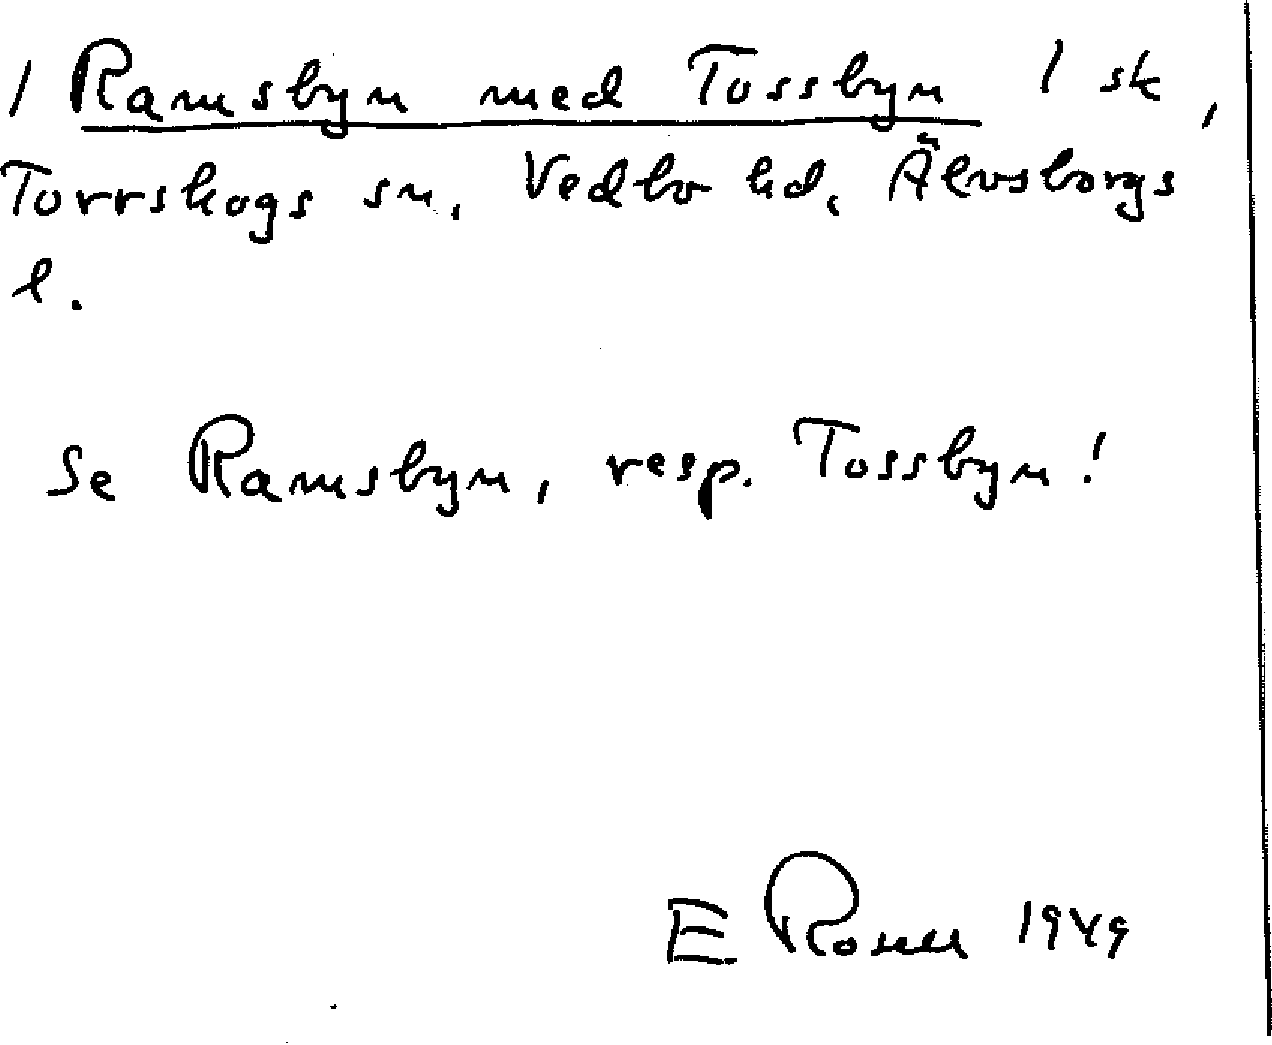 / Ramsbyn med Tossbyn / sk,
Torrskogs sn, Vedbo hd, Älvsborgs
l.
Se Ramsbyn, resp. Tossbyn!
E Rosell 1949